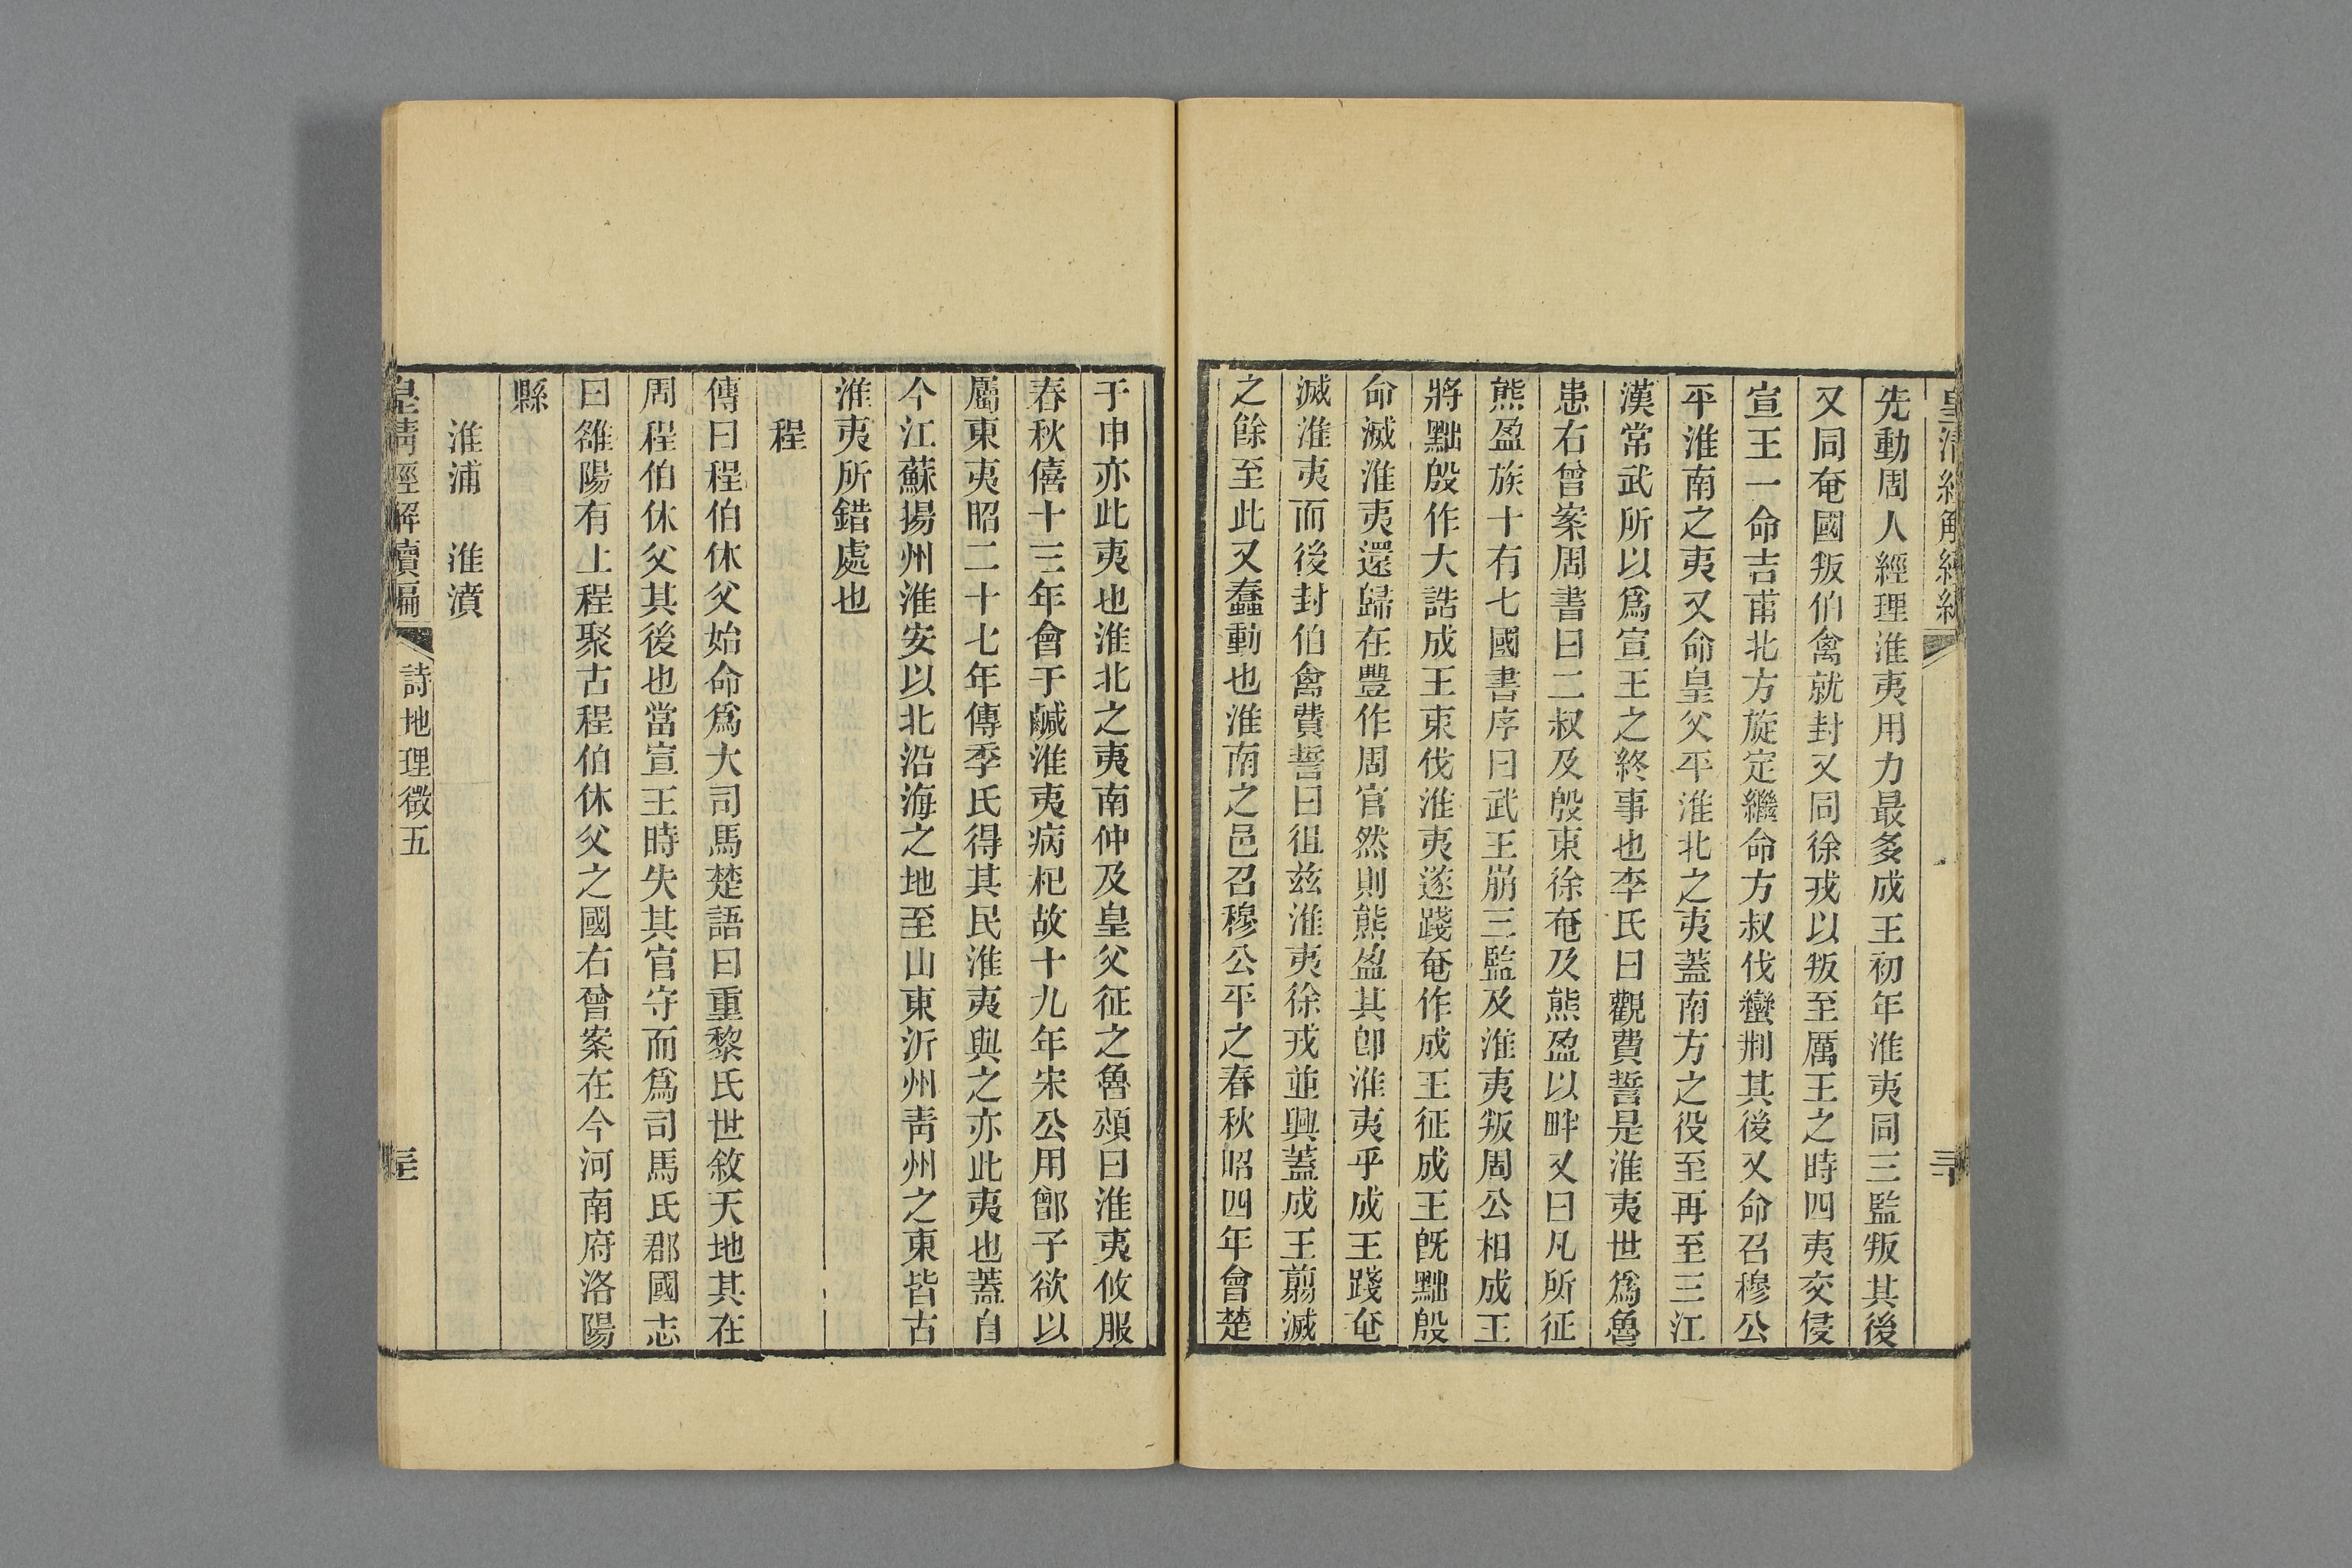 先動周人經理淮夷用力最多成王初年淮夷同三監叛其後
又同奄國叛伯禽就封又同徐戎以叛至厲王之時四夷交侵
宣王一命吉甫北方旋定繼命方叔伐蠻荆其後又命召穆公
平淮南之夷又命皇父平淮北之夷蓋南方之役至再至三江
漢常武所以爲宣王之終事也李氏曰觀費誓是淮夷世爲魯
患右曾案周書曰二叔及殷東徐奄及熊盈以畔又曰凡所征
熊盈族十有七國書序曰武王崩三監及淮夷叛周公相成王
將黜殷作大誥成王東伐淮夷遂踐奄作成王征成王旣黜殷
命滅淮夷還歸在豐作周官然則熊盈其卽淮夷乎成王踐奄
滅淮夷而後封伯禽費誓曰徂茲淮夷徐戎並興蓋成王翦滅
之餘至此又蠢動也淮南之邑召穆公平之春秋昭四年會楚
于申亦此夷也淮北之夷南仲及皇父征之魯頌曰淮夷攸服
春秋僖十三年會于鹹淮夷病杞故十九年宋公用鄫子欲以
屬東夷昭二十七年傳季氏得其民淮夷與之亦此夷也蓋自
今江蘇揚州淮安以北沿海之地至山東沂州靑州之東皆古
淮夷所錯處也
程
傳曰程伯休父始命爲大司馬楚語曰重黎氏世敘天地其在
周程伯休父其後也當宣王時失其官守而爲司馬氏郡國志
曰雒陽有上程聚古程伯休父之國右曾案在今河南府洛陽
縣
淮浦　淮濆
皇淸經解續編
詩地理徵五